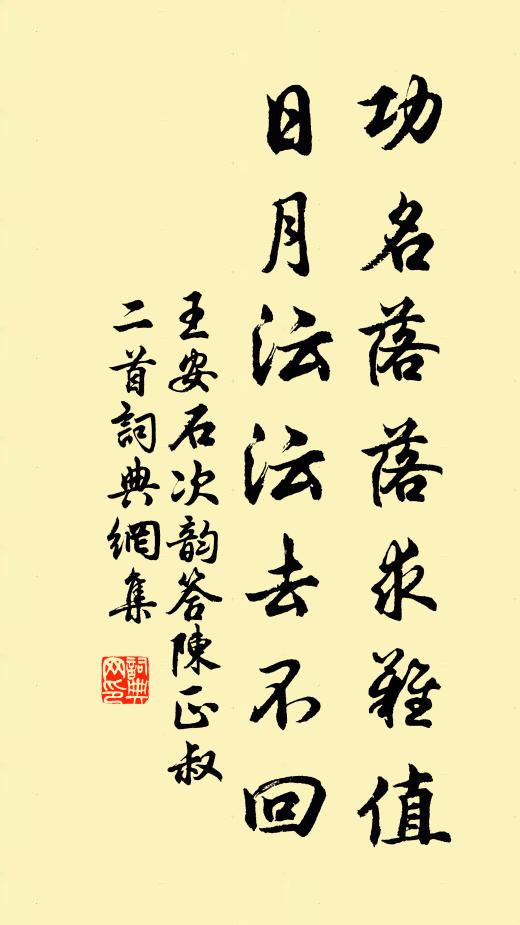 功名落落求難值
日月沄沄去不回
王安石次韵答陳正叔
二首詞典網集
詞典
网印